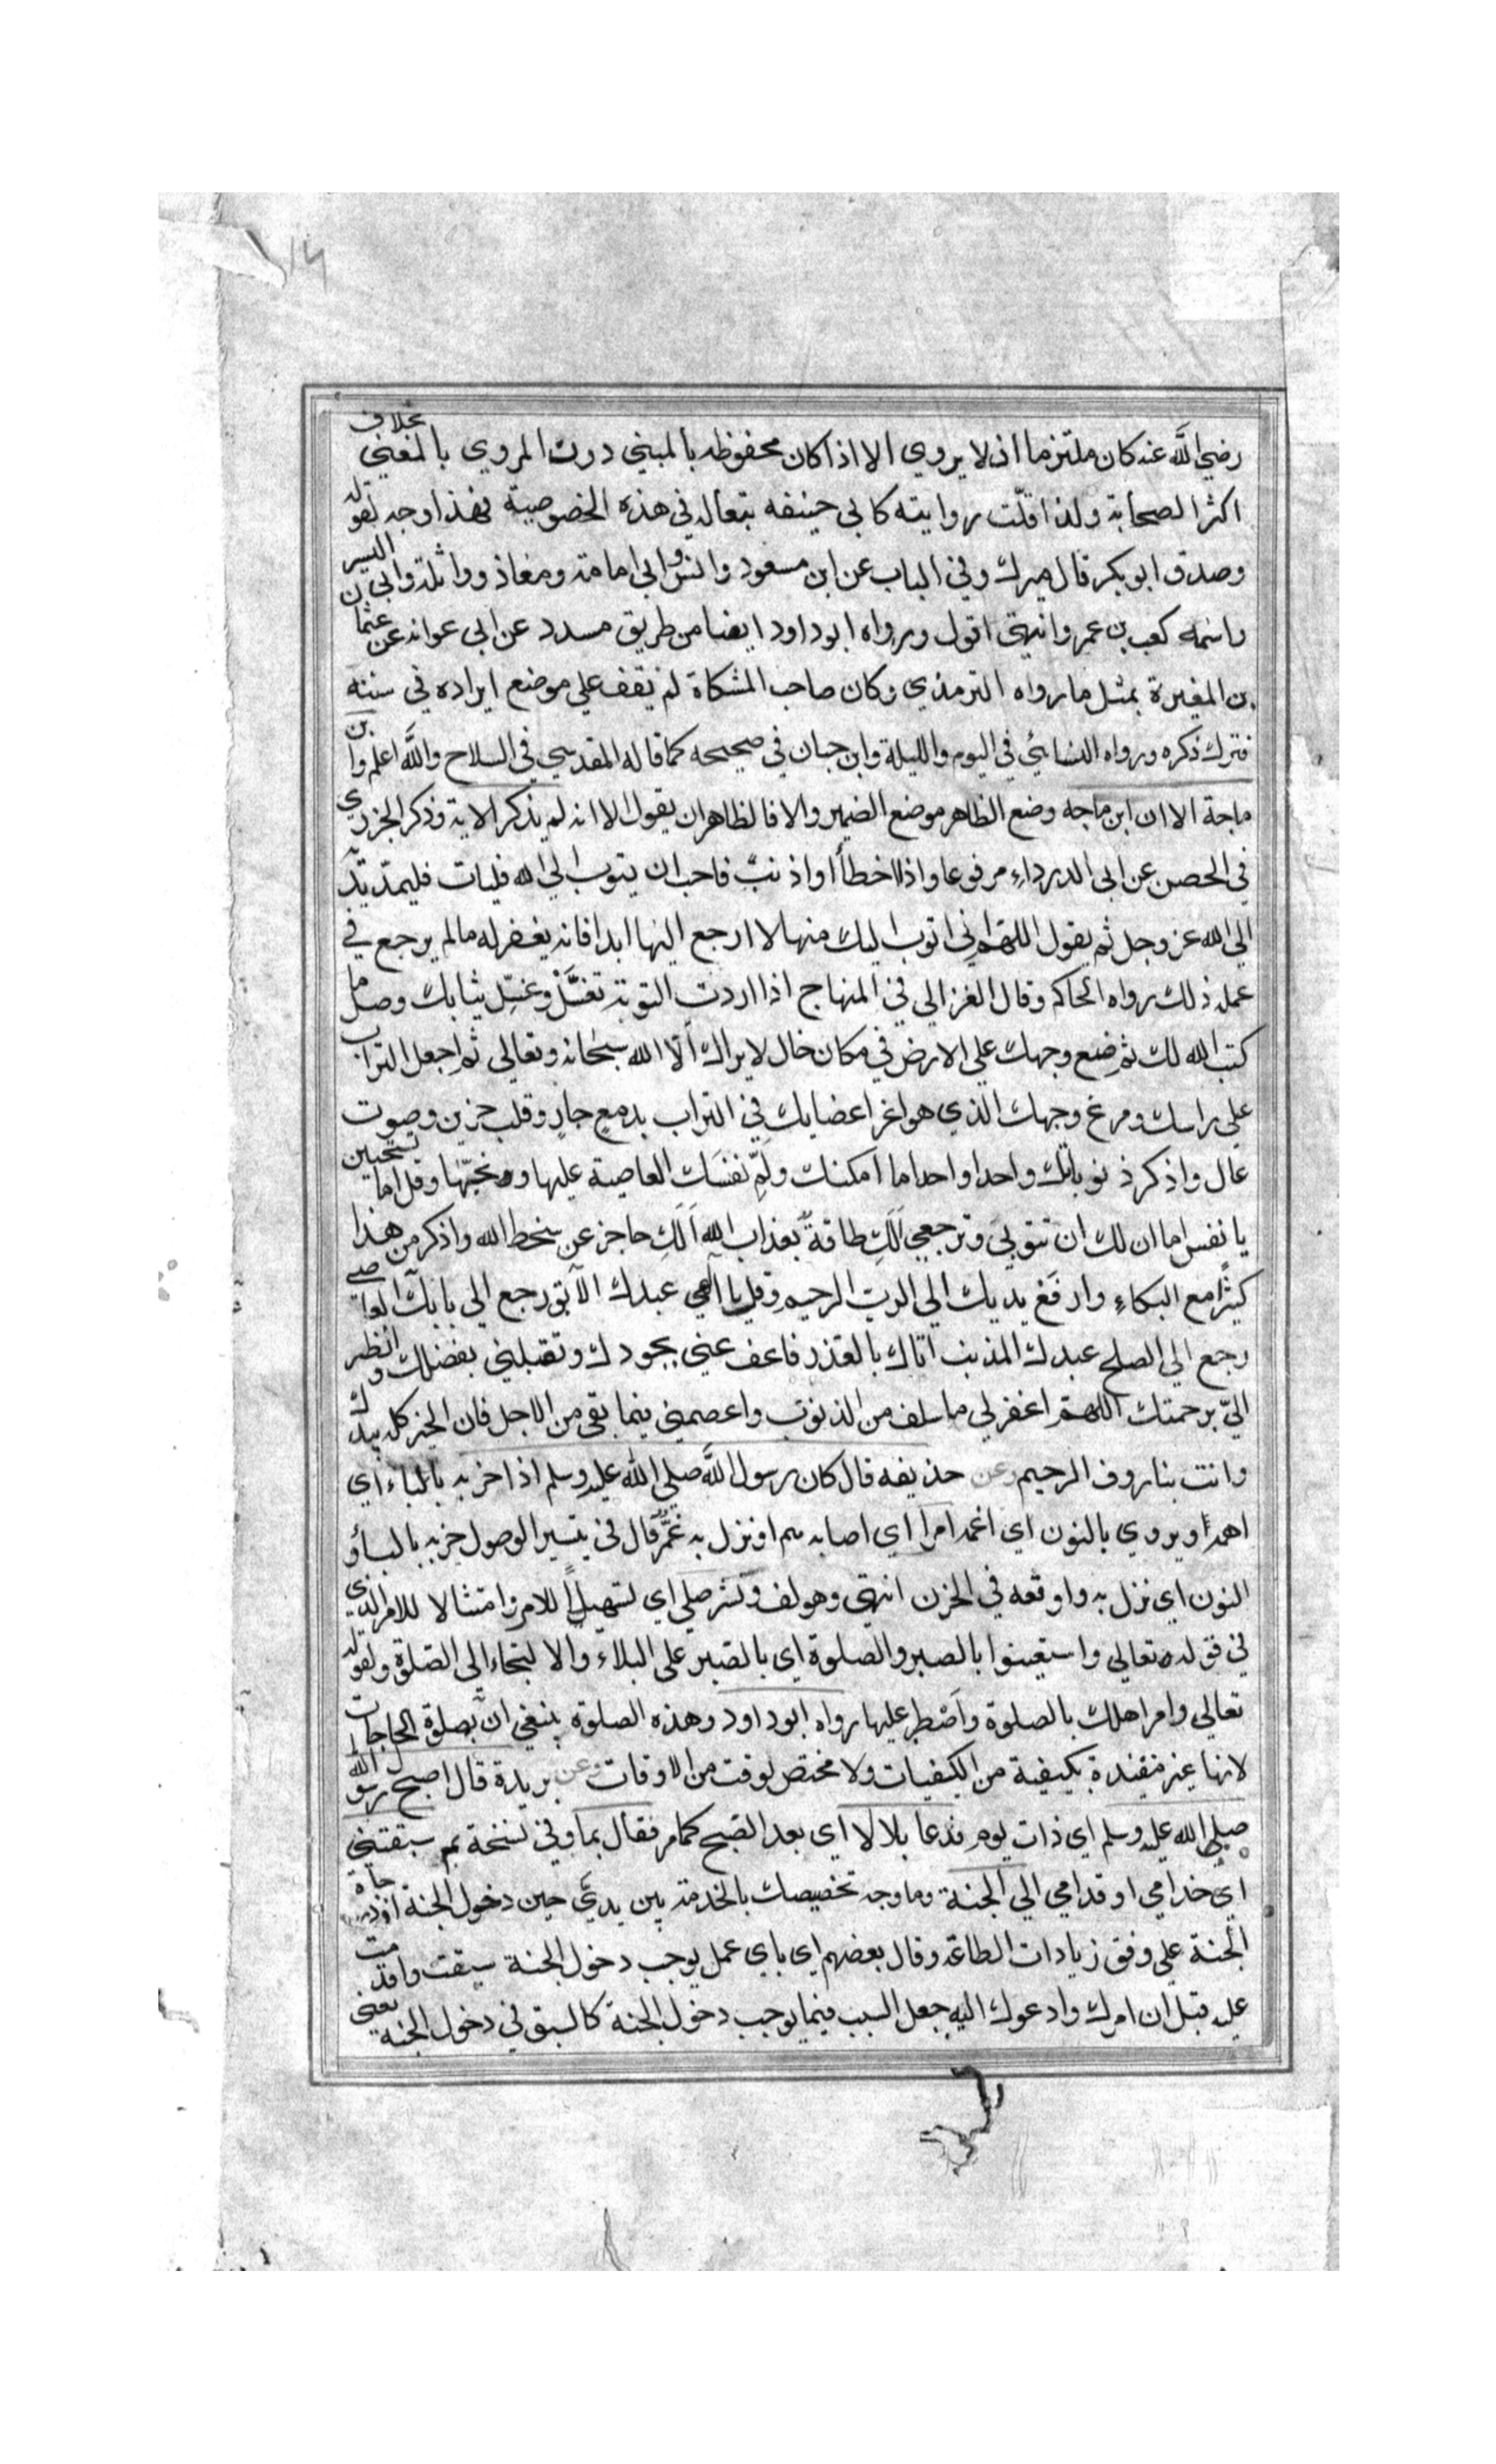 رضي الله عنه كان ملتزما ان لا يروي الا اذا كان محفوظه بالمبني دون المروي بالمعني بخلاف
اكثر الصحابة ولذا قلّت روايته كابي حنيفه تبعاله في هذه الخصوصية فهذا وجه لقوله
وصدق ابو بكر قال ميرك وفي الباب عن ابن مسعود وانس وابي امامة ومعاذ وواثلة وابي اليسر
واسمه كعب بن عمرو انتهي اقول ورواه ابو داود ايضا من طريق مسدد عن ابي عوانه عن عثما
بن المغيرة بمثل ما رواه الترمذي وكان صاحب المشكاة لم يقف علي موضع ايراده في سننه
فترك ذكره ورواه النسائي في اليوم والليلة وابن حبان في صحيحه كما قاله المقدسي في السلاح والله اعلم وابن
ماجة الا ان ابن ماجه وضع الظاهر موضع الضمير والا فالظاهر ان يقول الا انه لم يذكر الاية وذكر الجزري
في الحصن عن ابي الدرداء مرفوعا واذا اخطأ او اذنب فاحب ان يتوب الي الله فليات فليمد يديه
الي الله عز وجل ثم يقول اللهم اني اتوب اليك منها لا ارجع اليها ابدا فانه يغفر له ما لم يرجع في
عمله ذلك رواه الحاكم وقال الغزالي في المنهاج اذا اردت التوبة تغسّل وغسّل ثيابك وصل ما
كتب الله لك ثم ضع وجهك علي الارض في مكان خال لا يراك الّا الله سبحانه وتعالي ثم اجعل التراب
علي راسك ومرغ وجهك الذي هو اعز اعضايك في التراب بدمع جارٍ وقلب حزين وصوت
عال واذكر ذنوبك واحدا واحدا ما امكنك ولُمْ نفسَك العاصية عليها ووبخها وقل اما تستحيين
يا نفس اما ان لك ان تتوبي وترجعي الكِ طاقةٌ بعذاب الله الكِ حاجز عن سخط الله واذكر من هذا
كثيرًا مع البكاء وارفع يديك الي الرب الرحيم وقل يا الهي عبدك الآبق رجع الي بابك العاصي
رجع الي الصلح عبدك المذنب اتاك بالعذر فاعف عني بجودك وتقبلني بفضلك وانظر
اليّ برحمتك اللهم اغفر لي ما سلف من الذنوب واعصمني فيما بقي من الاجل فان الخير كله بيدك
وانت بنا روف الرحيم وعن حذيفه قال كان رسول الله صلي الله عليه وسلم اذا حزبه بالباء اي
اهمه ويروي بالنون اي اغمه امرا اي اصابه هم او نزل به غمّ قال في تيسير الوصول حزبه بالباء و
النون اي نزل به واوقعه في الحزن انتهي وهو لف ونشر صلي اي تسهيلا للامر وامتثالا للامر الذي
في قوله تعالي واستعينوا بالصبر والصلوة اي بالصبر علي البلاء والالتجاء الي الصلوة ولقوله
تعالي وامر اهلك بالصلوة واصطبر عليها رواه ابو داود وهذه الصلوة ينبغي ان بصلوة الحاجات
لانها غير مقيدة بكيفية من الكيفيات ولا مختص لوقت من الاوقات وعن بريدة قال اصبح رسول الله
صلي الله عليه وسلم اي ذات يوم فدعا بلالا اي بعد الصبح كما مر فقال بما وفي نسخة بم سبقتني
اي خدامي او قدامي الي الجنة وما وجه تخصيصك بالخدمة بين يديّ حين دخول الجنة اذ درجات
الجنة علي وفق زيادات الطاعة وقال بعضهم اي باي عمل يوجب دخول الجنة سبقت واقدمت
عليه قبل ان امرك وادعوك اليه جعل السبب فيما يوجب دخول الجنة كالسبق في دخول الجنة يعني